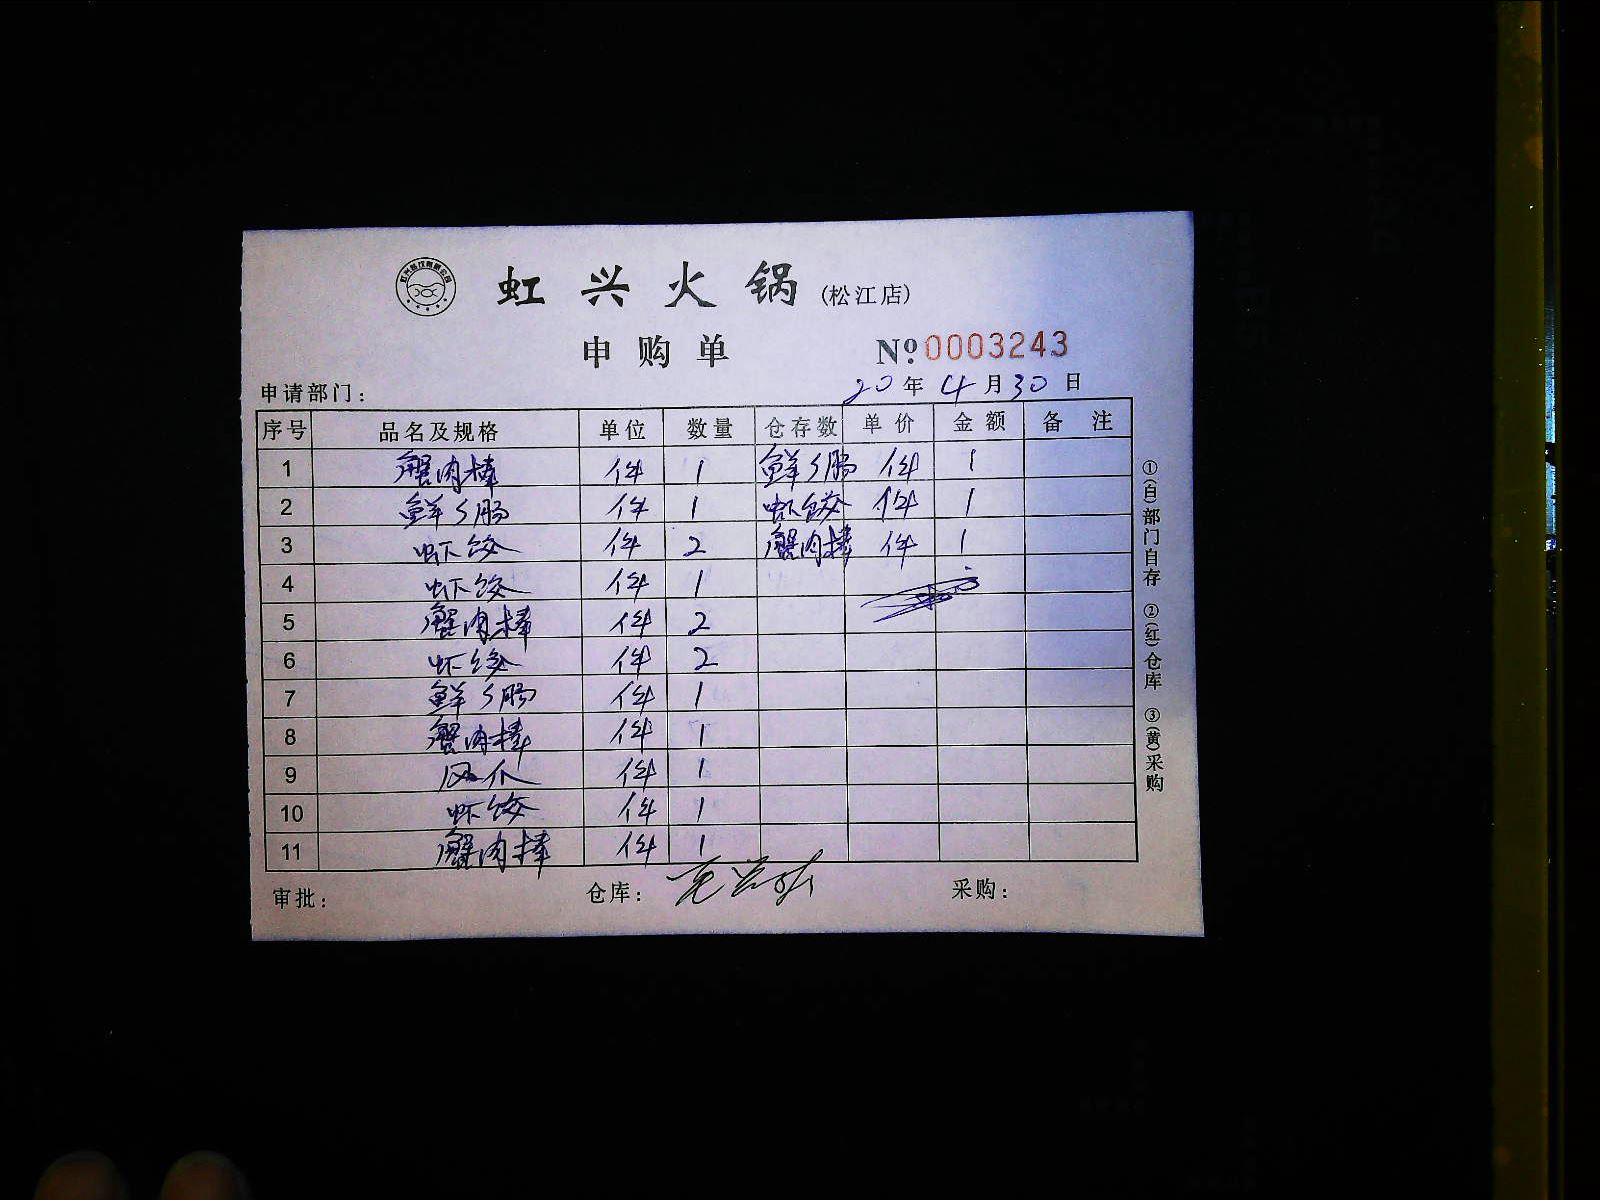 虹兴火锅(松江店)
申购单 №:0003243
申请部门: 20年4月30日
序号 品名及规格 单位 数量 仓存数 单价 金额 备注
1 蟹肉棒 件 1 鲜彡肠 件 1
2 鲜彡肠 件 1 虾饺 件 1
3 虾饺 件 2 蟹肉棒 件 1
4 虾饺 件 1
5 蟹肉棒 件 2
6 虾饺 件 2
7 鲜彡肠 件 1
8 蟹肉棒 件 1
9 风爪 件 1
10 虾饺 件 1
11 蟹肉棒 件 1
审批: 仓库: 采购:
①(白)部门自存 ②(红)仓库 ③(黄)采购